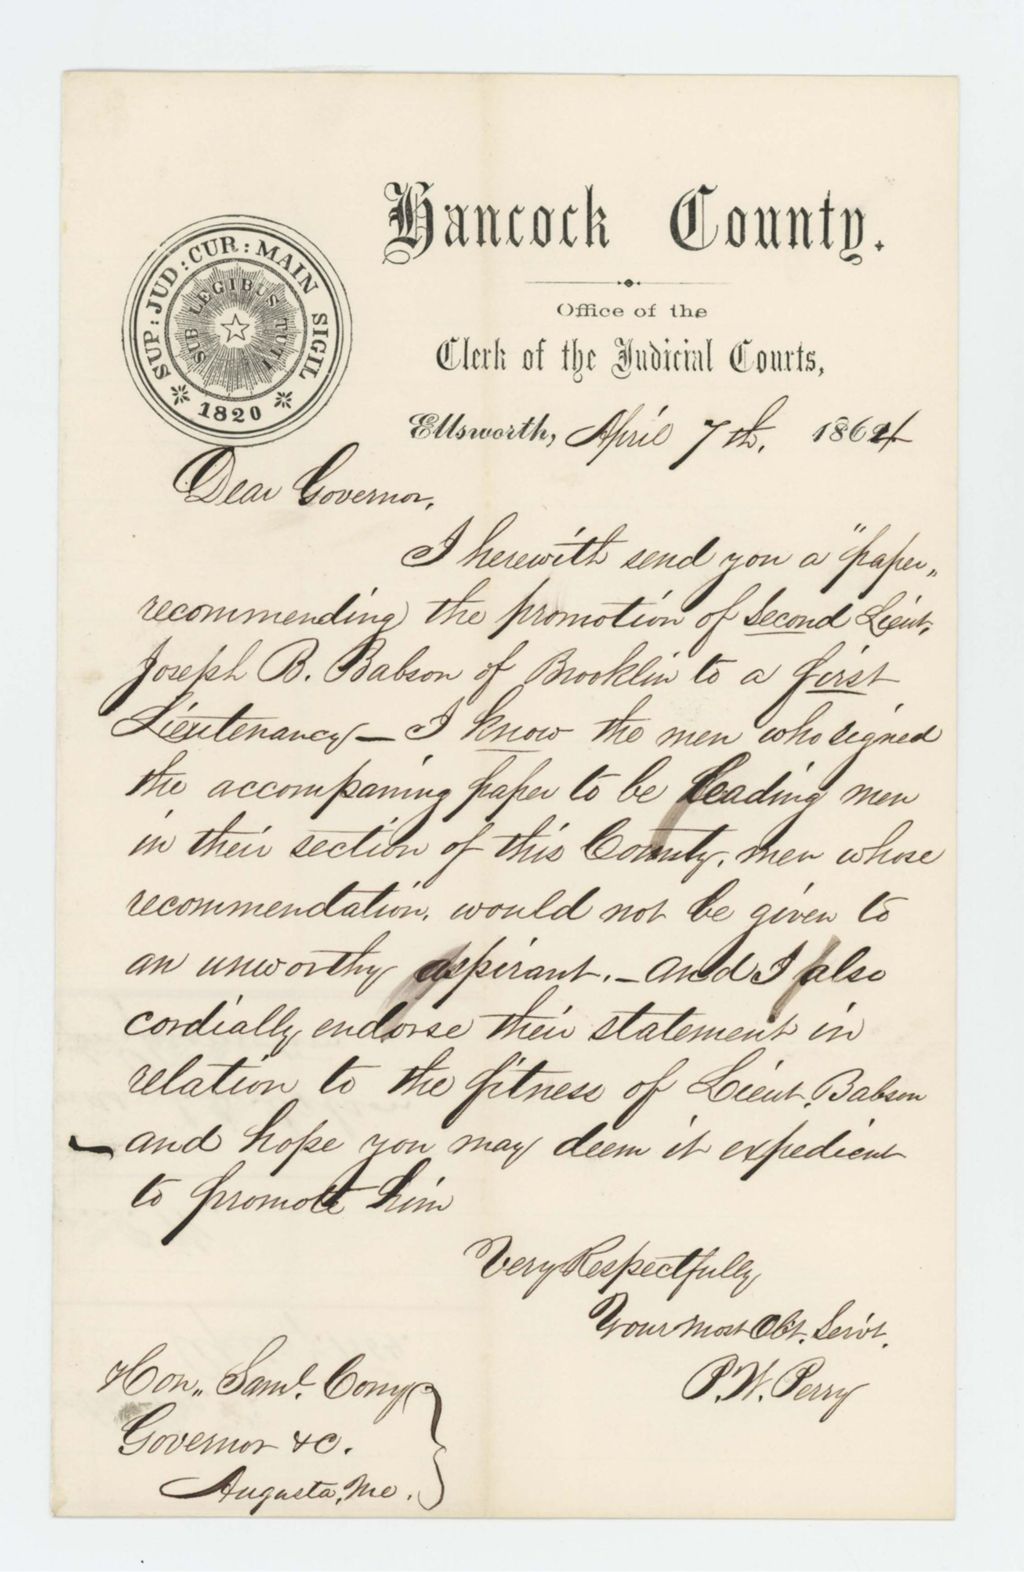 Hancock County.
SUP: JUD: CUR: MAIN SIGIL
SUB LEGIBUS TUTI
1820
Office of the
Clerk of the Judicial Courts,
Ellsworth, April 7th, 1864
Dear Governor,
I herewith send you a "paper"
recommending the promotion of Second Lieut,
Joseph B. Babson of Brooklin to a first
Lieutenancy — I know the men who signed
the accompaning paper to be leading men
in their section of this County, men whose
recommendation, would not be given to
an unworthy aspirant. — and I also
cordially endorse their statement in
relation to the fitness of Lieut. Babson
— and hope you may deem it expedient
to promote him
Very Respectfully
Your most Obt. Servt.
P. W. Perry
Hon. Saml. Cony
Governor &c.
Augusta, Me.